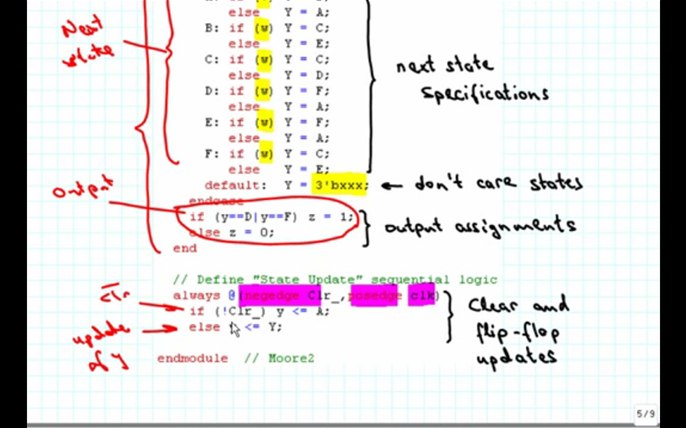 else Y = A;
B: if (w) Y = C;
else Y = E;
C: if (w) Y = C;
else Y = D;
D: if (w) Y = F;
else Y = A;
E: if (w) Y = F;
else Y = A;
F: if (w) Y = C;
else Y = E;
default: Y = 3'bxxx;
endcase
if (y==D|y==F) z = 1;
else z = 0;
end
// Define "State Update" sequential logic
always @(negedge Clr_,posedge clk)
if (!Clr_) y <= A;
else y <= Y;
endmodule // Moore2
Next
state
output
clr
update
of y
next state
specifications
← don't care states
output assignments
clear and
flip-flop
updates
5/9